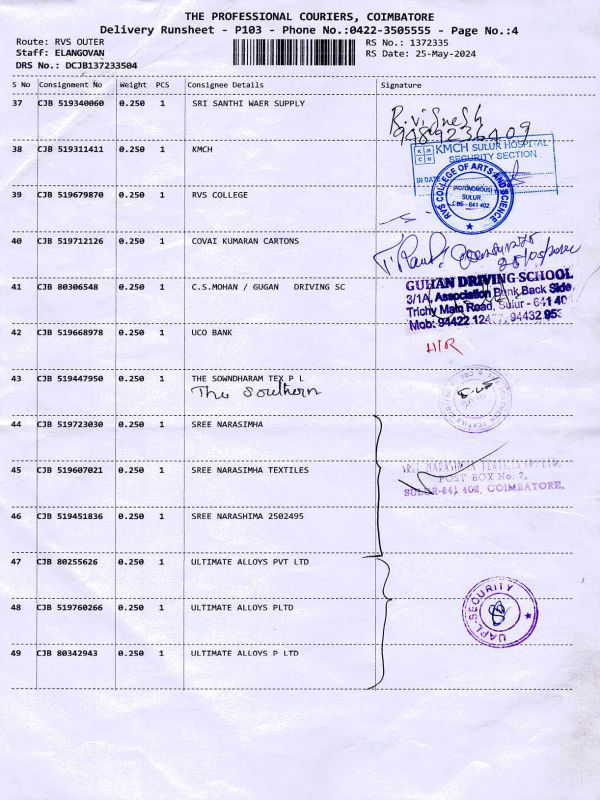 THE PROFESSIONAL COURIERS, COIMBATORE
Delivery Runsheet - P103 - Phone No.:0422-3505555 - Page No.:4
Route: RVS OUTER
Staff: ELANGOVAN
DRS No.: DCJB137233504
RS No.: 1372335
RS Date: 25-May-2024
S No Consignment No Weight PCS Consignee Details Signature
37 CJB 519340060 0.250 1 SRI SANTHI WAER SUPPLY
R.vignesh
9489236409
38 CJB 519311411 0.250 1 KMCH
KMCH SULUR HOSPITAL
SECURITY SECTION
IN DATE
39 CJB 519679870 0.250 1 RVS COLLEGE
RVS COLLEGE OF ARTS AND SCIENCE
(AUTONOMOUS)
SULUR
CBE - 641 402
40 CJB 519712126 0.250 1 COVAI KUMARAN CARTONS
41 CJB 80306548 0.250 1 C.S.MOHAN / GUGAN DRIVING SC
GUHAN DRIVING SCHOOL
3/1A, Association Bunk Back Side,
Trichy Main Road, Sulur - 641 40
Mob: 94422 12477, 94432 953
42 CJB 519668978 0.250 1 UCO BANK
H/R
43 CJB 519447950 0.250 1 THE SOWNDHARAM TEX P L
The Southern
44 CJB 519723030 0.250 1 SREE NARASIMHA
45 CJB 519607021 0.250 1 SREE NARASIMHA TEXTILES
NARASIMHA TEXTILES
POST BOX No: 2,
SULUR-641 402, COIMBATORE.
46 CJB 519451836 0.250 1 SREE NARASHIMA 2502495
47 CJB 80255626 0.250 1 ULTIMATE ALLOYS PVT LTD
48 CJB 519760266 0.250 1 ULTIMATE ALLOYS PLTD
UAPL-SECURITY
49 CJB 80342943 0.250 1 ULTIMATE ALLOYS P LTD